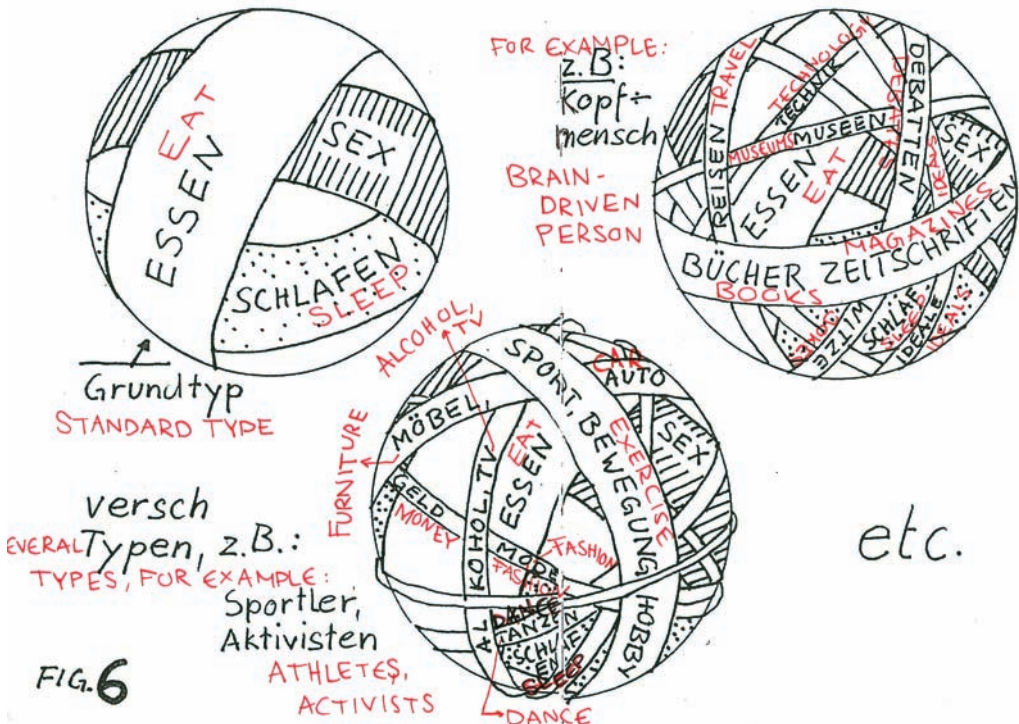 EAT
ESSEN
SEX
SCHLAFEN
SLEEP
Grundtyp
STANDARD TYPE
FOR EXAMPLE:
z.B:
Kopf÷
mensch
BRAIN-
DRIVEN
PERSON
REISEN TRAVEL
TECHNOLOGY
TECHNIK
MUSEUMS MUSEEN
DEBATTEN
DEBATTES
IDEALS
SEX
ESSEN
EAT
MAGAZINES
BÜCHER ZEITSCHRIFTEN
BOOKS
WITZE
SCHLAF
SLEEP
IDEALE
IDEALS
versch
EVERAL Typen, z.B.:
TYPES, FOR EXAMPLE:
Sportler,
Aktivisten
ATHLETES,
ACTIVISTS
ALCOHOL,
TV
FURNITURE
MÖBEL,
SPORT, BEWEGUNG HOBBY
EXERCISE
CAR
AUTO
SEX
EAT
ESSEN
ALKOHOL, TV
GELD
MONEY
MODE
FASHION
FASHION
DANCE
TANZEN
SCHLAF
EN
SLEEP
DANCE
etc.
FIG. 6